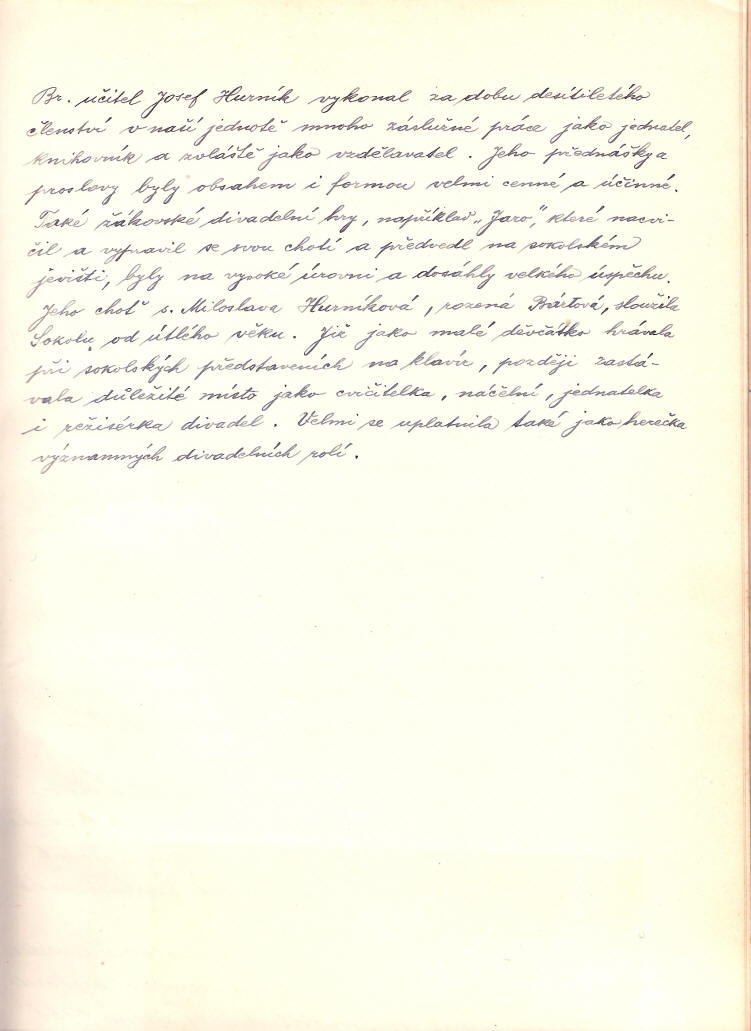 Br. učitel Josef Hurník vykonal za dobu desítiletého
členství v naší jednotě mnoho záslužné práce jako jednatel,
knihovník a zvláště jako vzdělavatel. Jeho přednášky a
proslovy byly obsahem i formou velmi cenné a účinné.
Také žákovské divadelní hry, například „Jaro“, které nacvi-
čil a vypravil se svou chotí a předvedl na sokolském
jevišti, byly na vysoké úrovni a dosáhly velkého úspěchu.
Jeho choť s. Miloslava Hurníková, rozená Bártová, sloužila
Sokolu od útlého věku. Již jako malé děvčátko hrávala
při sokolských představeních na klavír, později zastá-
vala důležité místo jako cvičitelka, náčelní, jednatelka
i režisérka divadel. Velmi se uplatnila také jako herečka
významných divadelních rolí.